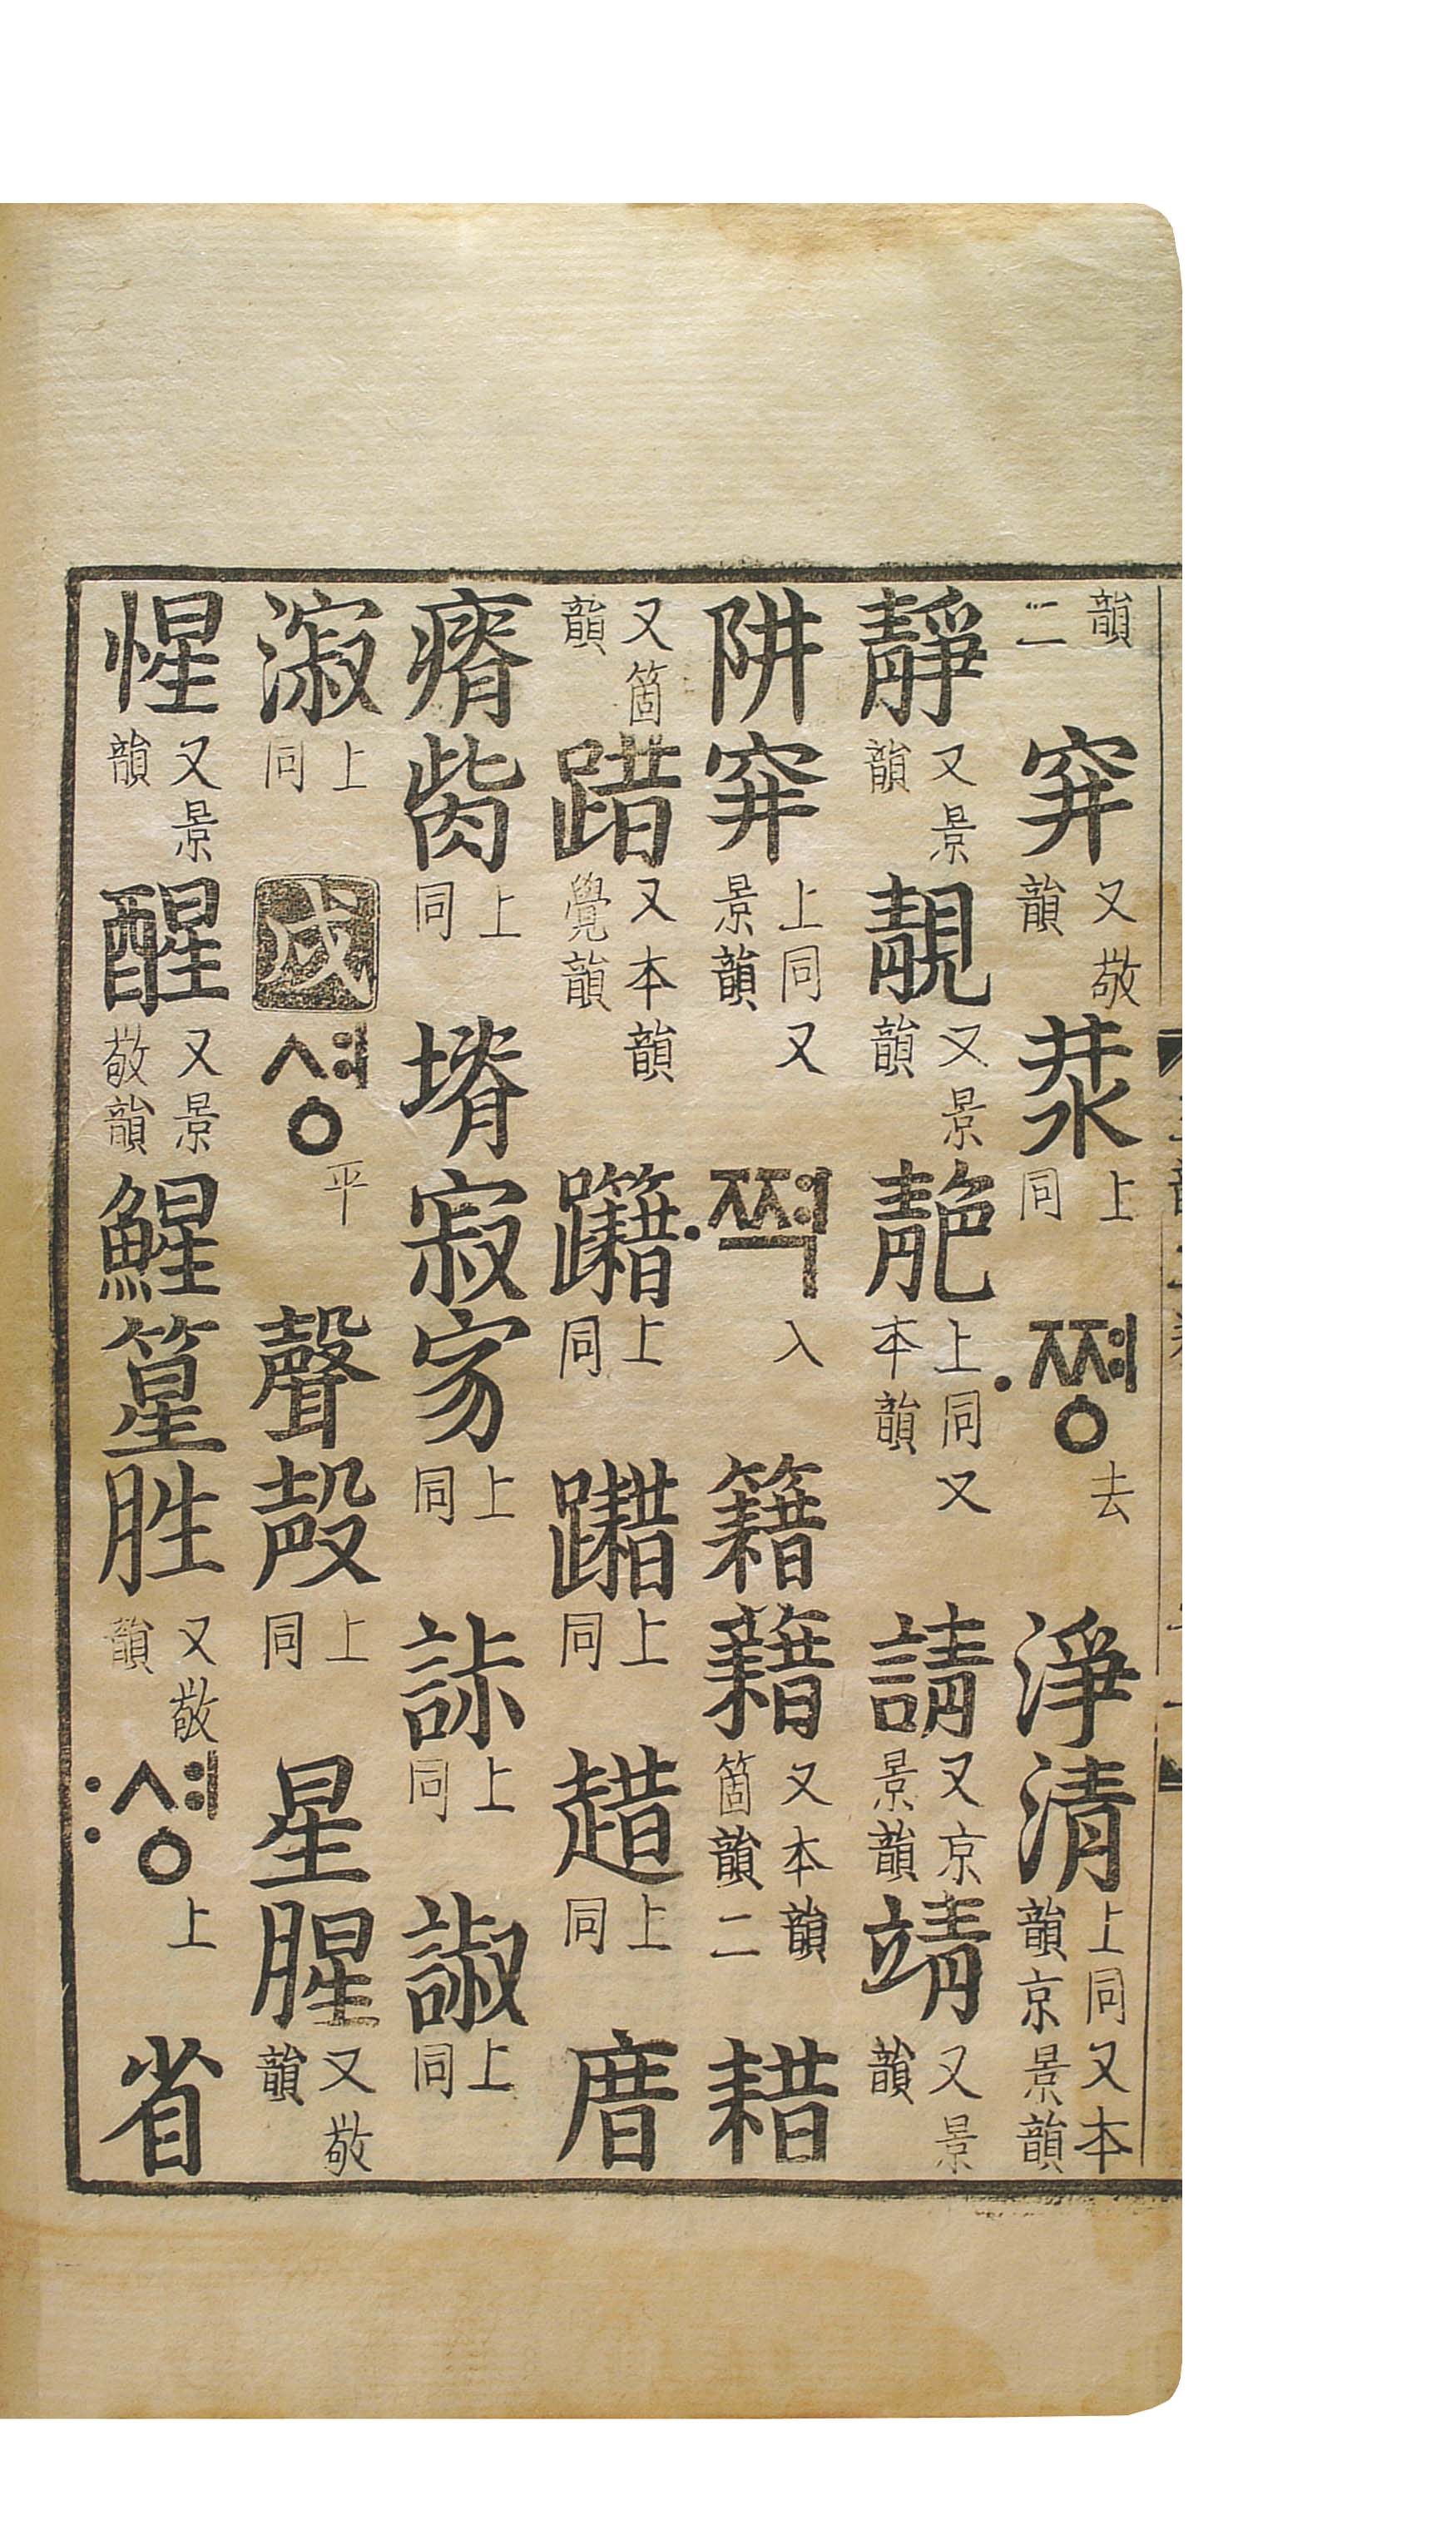 韻二 穽 又敬韻 汬 上同 ·쪙 去 淨 清 上同又本韻京景韻
靜 又景韻 靚 又景韻 靘 上同又本韻 請 又京景韻 靖 又景韻
阱 穽 上同又景韻 ·쪅 入 籍 藉 又本韻箇韻二 耤
又箇韻 踖 又本韻覺韻 躤 上同 上同 趞 上同 厝
瘠 胔 上同 塉 寂 上同 上同 諔 上同
漃 上同 戌 셩 平 聲 殸 上同 星 腥 又敬韻
惺 又景韻 醒 又景敬韻 鯹 篂 胜 又敬韻 :셩 上 省